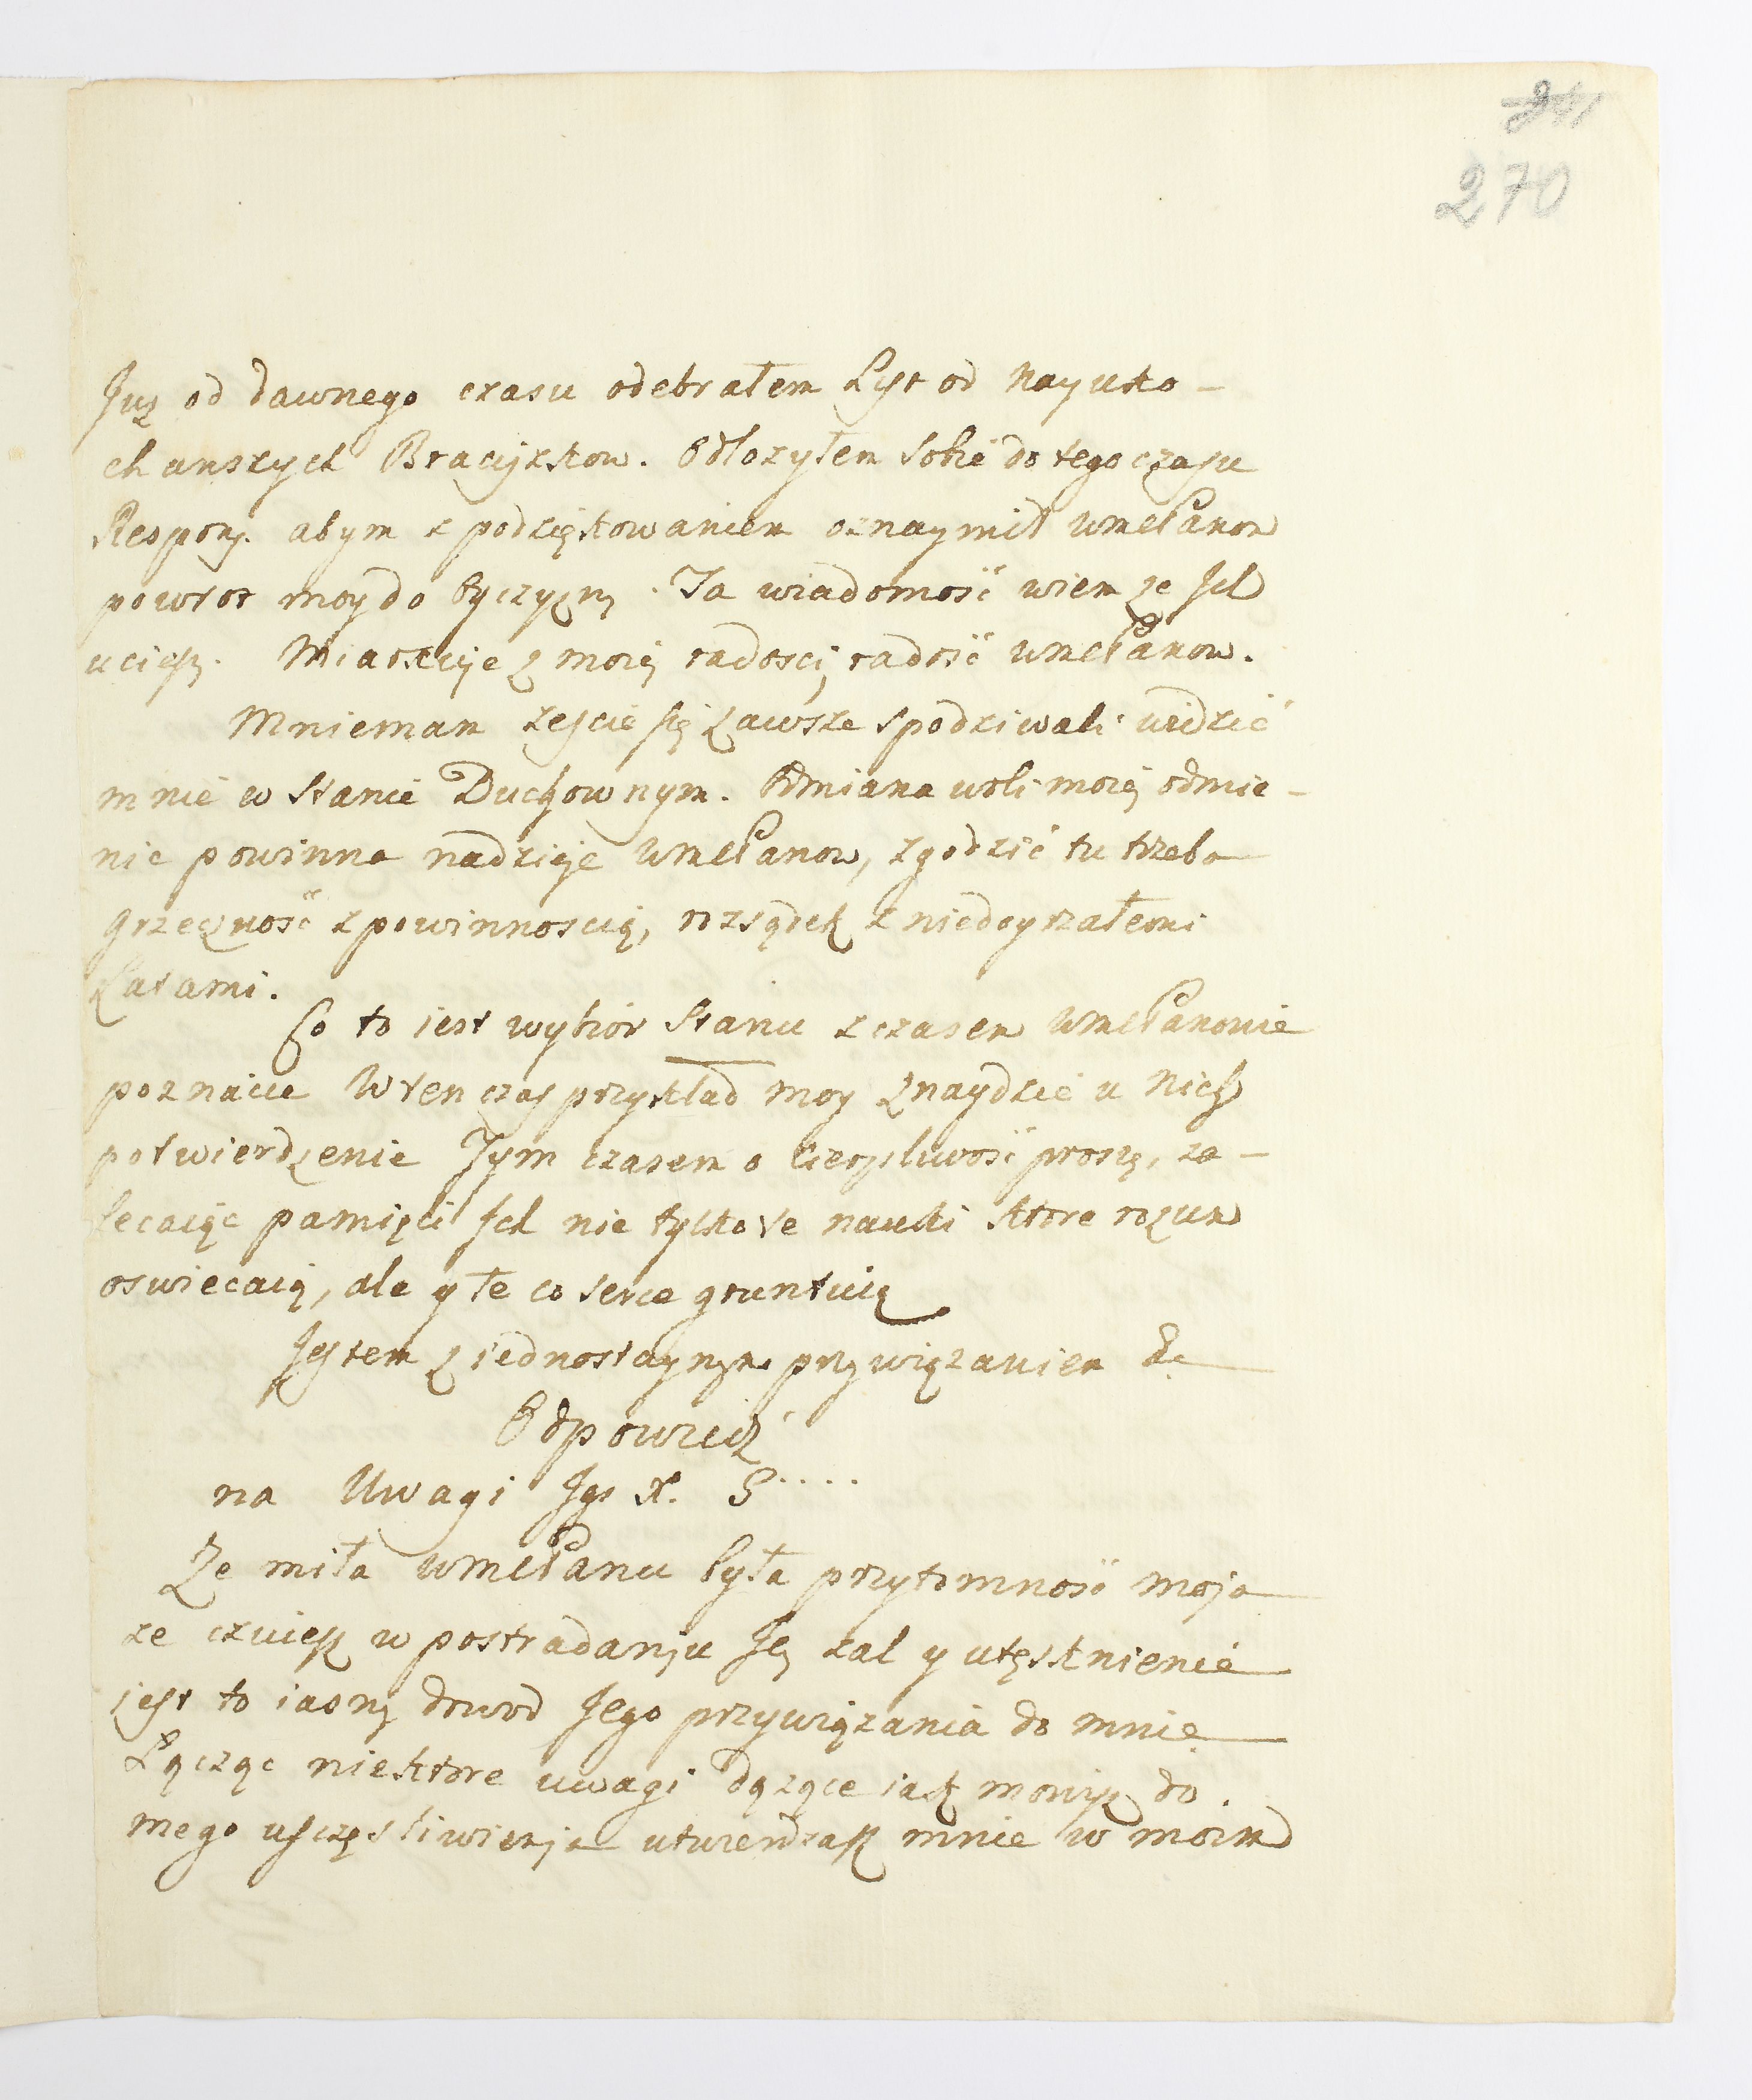 270
Juz od dawnego czasu odebrałem Lyst od Nayuko-
chanszych Bracijszkow. Odłozyłem sobie do tego czasu
Respons. abym z podziękowaniem oznaymił WmćPanom
powrot moy do Oyczyzny. Ta wiadomość wiem ze Jch
ucieszy. Miarkuje z moię radosci, radość WmćPanow.
Mniemam zescie się zawsze spodziwali widzić
mnie w Stanie Duchownym. Odmiana woli moię odmie-
nic powinna nadzieje WmćPanow, zgodzić tu trzeba
grzeczność z powinnoscią, rozsądek z niedoyrzałemi
Latami.
Co to iest wybior Stanu z czasem WmćPanowie
poznacie Wten czas przykład moy znaydzie u Nich
potwierdzenie Tym czasem o cierpliwość proszę, za-
lecaiąc pamięci Jch nie tylko te nauki ktore rozum
oswiecaią, ale y te co serce gruntuią
Jestem z iednostaynym przywiązaniem &c
Odpowiedź
na Uwagi Jgo X. S....
Ze miła WmćPanu była przytomność moja
ze czuiesz w postradaniu Jey zal y utęsknienie
jest to iasny dowod Jego przywiązania do mnie
Łącząc niektore uwagi dązące iak mowisz do
mego uszczęsliwienja utwierdzasz mnie w moim